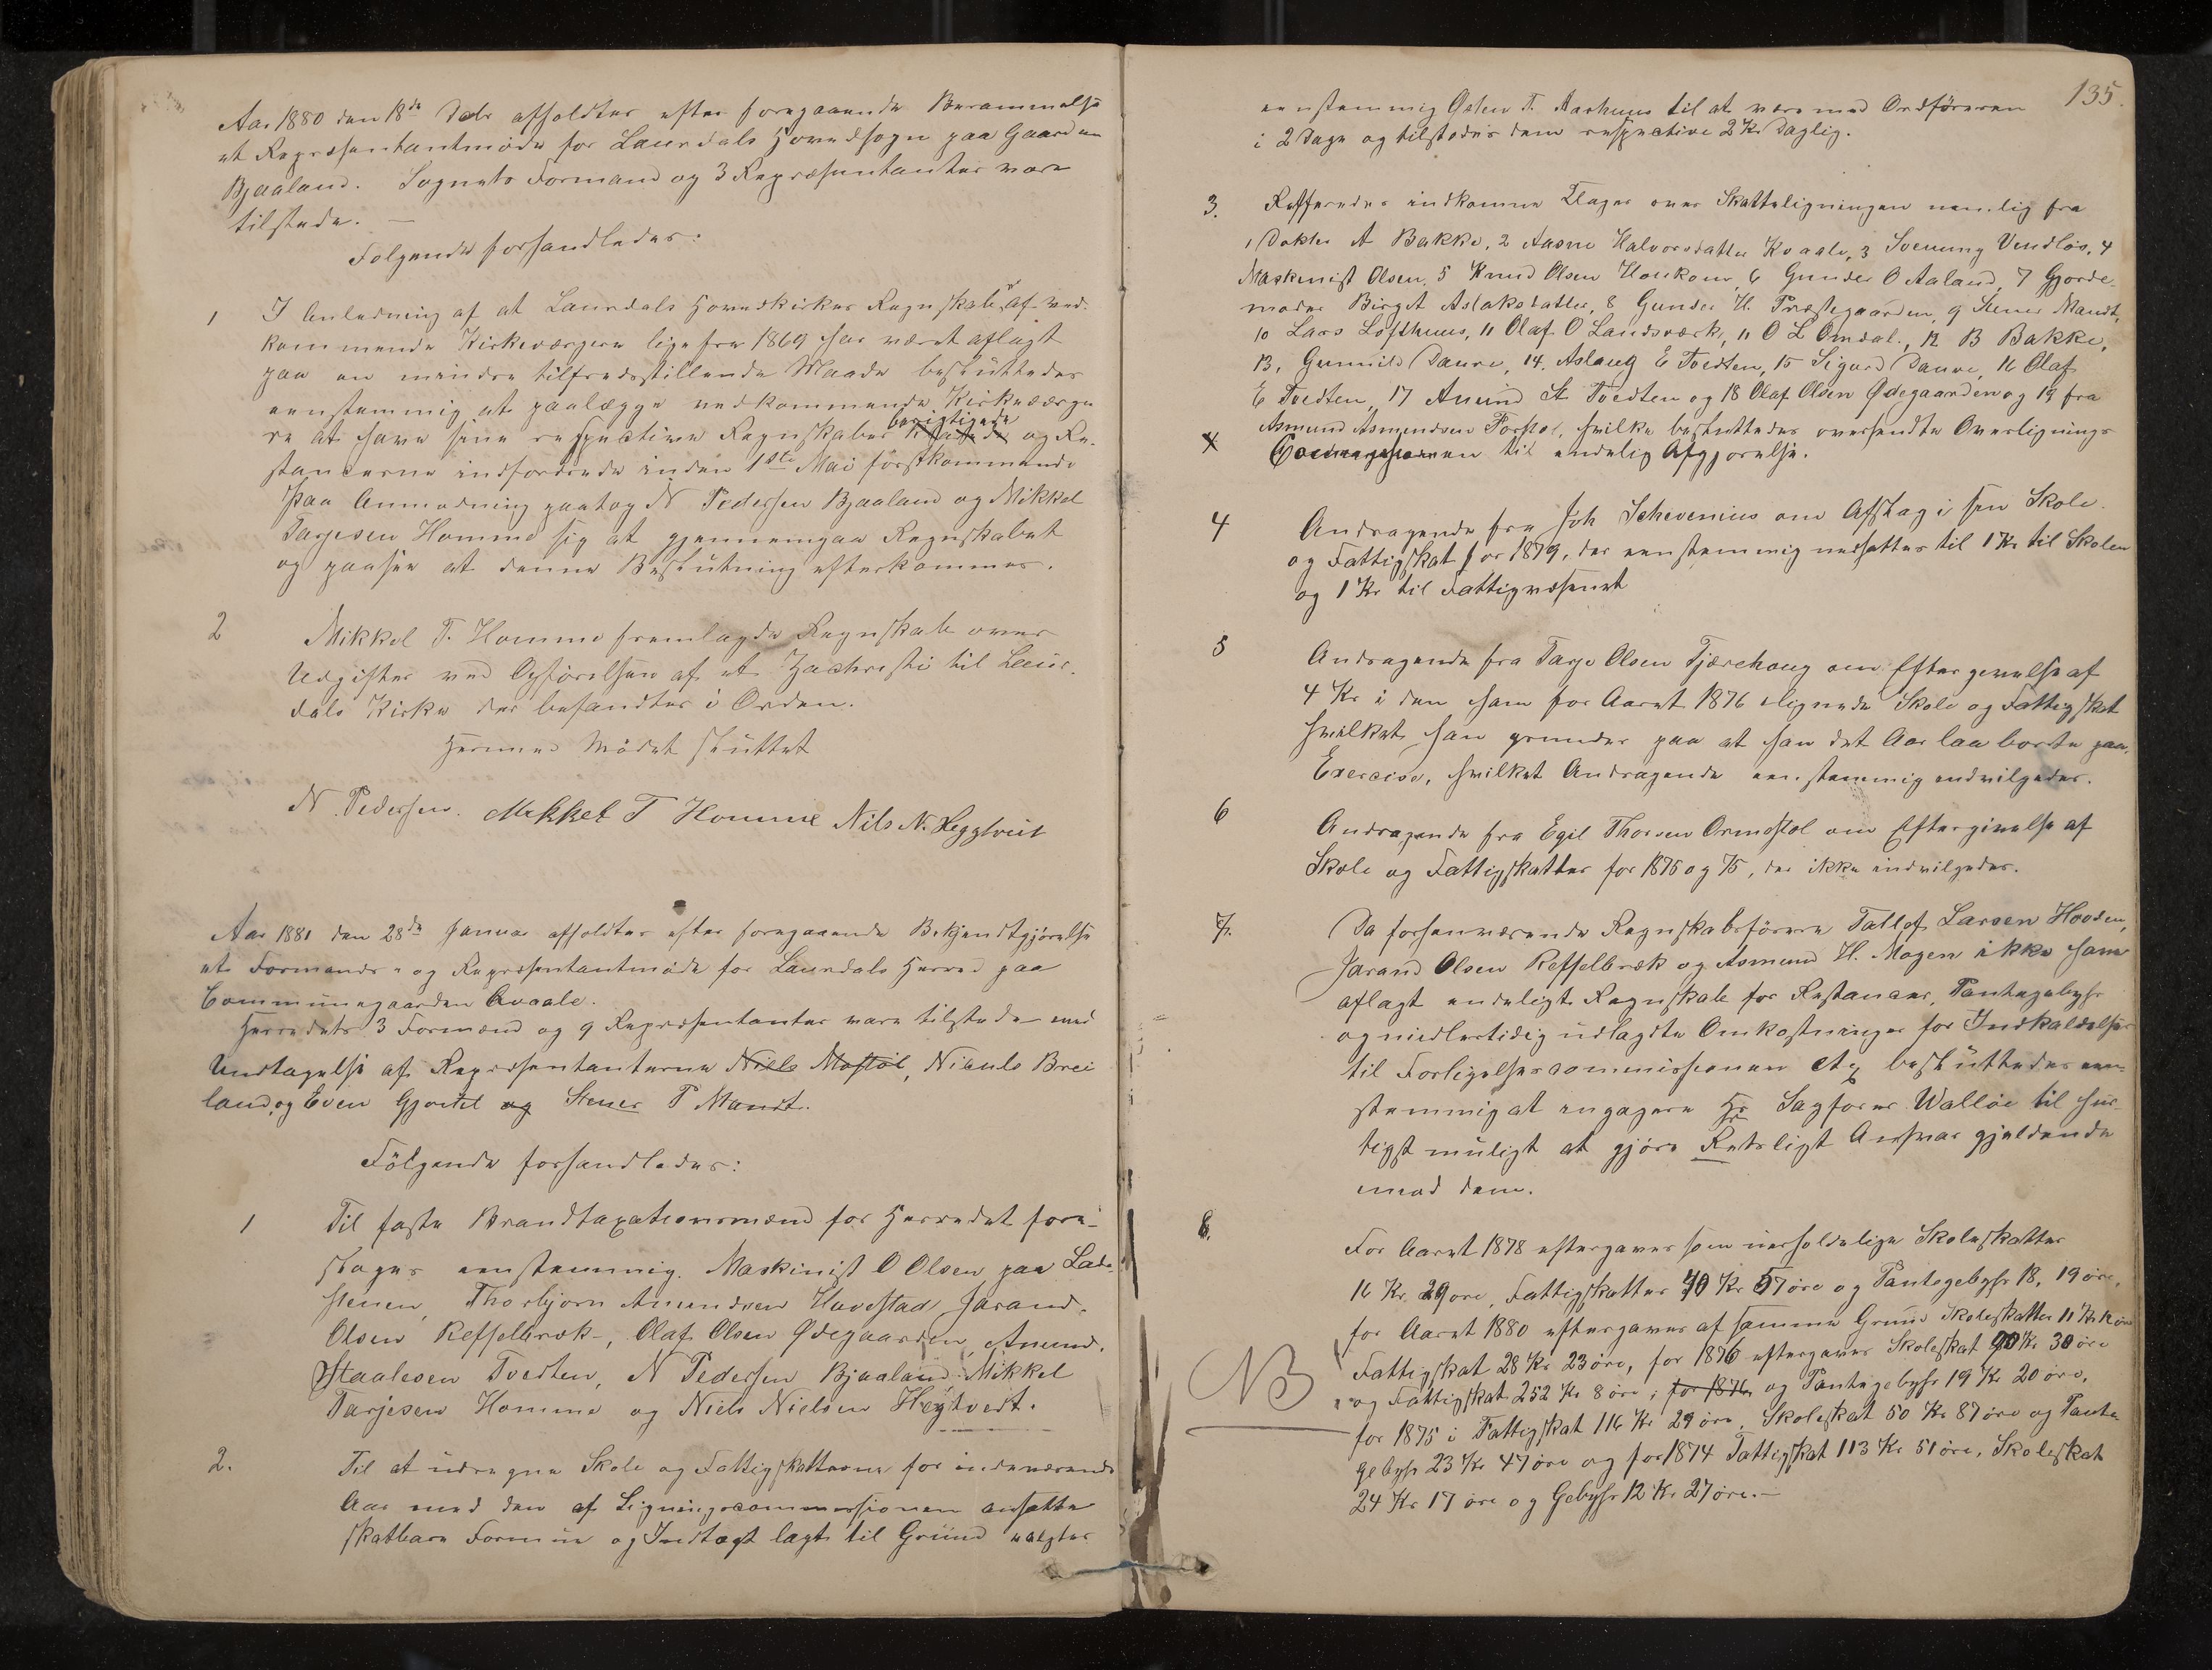 Aar 1880 den 18de Decbr afholdtes efter foregaaende Berammelse
et Repræsentantmøde for Laurdals Hovedsogn paa Gaarden
Bjaaland. Sognets Formand og 3 Repræsentanter vare
tilstede. —
Følgende forhandledes:
1 I Anledning af at Laurdals Hovedkirkes Regnskaber af ved-
kommende Kirkeværgere lige fra 1869 har været aflagt
paa en mindre tilfredsstillende Maade besluttedes
eenstemmig at paalægge vedkommende Kirkeværge
berigtigede
re at have sine respective Regnskaber og Re-
stancerne indfordrede inden 1ste Mai førstkommende
Paa Anmodning paatog N Pedersen Bjaaland og Mikkel
Tarjesen Homme sig at gjennemgaa Regnskabet
og paasee at denne Beslutning efterkommes.
2 Mikkel T. Homme fremlagde Regnskab over
Udgifter ved Opførelsen af et til Laur-
dals Kirke der befandtes i Orden.
Hermed Mødet sluttet
N. Pedersen. Mikkel T Homme Nils N. Heggtveit
Aar 1881 den 28de Januar afholdtes efter foregaaende Bekjendtgjørelse
et Formands- og Repræsentantmøde for Laurdals Herred paa
Communegaarden Kvaale.
Herredets 3 Formænd og 9 Repræsentanter vare tilstede med
Undtagelse af Repræsentanterne Niels Mostøl, Nicule Brei
land, og Even Gjovtil og Stener P Mandt.
Følgende forhandledes:
1 Til faste Brandtaxationsmænd for Herredet fore-
sloges eenstemmig. Maskinist O Olsen paa Lade-
stenen, Thorbjørn Amundsen Havestad Jarand
Olsen Reffelbræk, Olaf Olsen Ødegaarden, Amund.
Staalesen Tvedten, N Pedersen Bjaaland Mikkel
Tarjesen Homme og Niels Nielsen Hegtvedt.
2. Til at udregne Skole og Fattigskatterne for indeværende
Aar med den af Ligningscommissionen ansatte
skatbare Formue og Indtægt lagt til Grund valgtes
135.
eenstemmig Østen T. Aarhuus til at være med Ordføreren
i 2 Dage og tilstodes dem respective 2 Kr Daglig.
3. Refferedes indkomne Klager over Skatteligningen nemlig fra
1 A Bakke, 2 Aasne Halvorsdatter Kvaale, 3 Svenung Vindlös, 4
Maskinist Olsen, 5 Knud Olsen Haukom, 6 Gunder O Aaland, 7 Gjorde-
moder Birgit Aslaksdatter, 8 Gunder H. Præstegaarden, 9 Stener Mandt,
10 Lars Lofthuus, 11 Olaf O Landsværk, 11 O L Omdal., 12 B Bakke,
13, Gunnild Daure, 14. Aslaug E Tvedten, 15 Sigurd Daure, 16 Olaf
E Tvedten, 17 Amund St Tvedten og 18 Olaf Olsen Ødegaarden og 19 fra
Asmund Asmundsen, hvilke besluttedes oversendte Overlignings
x Commissionen til endelig Afgjørelse.
4 Andragende fra Joh Schevenius om Afslag i sin Skole
og Fattigskat for 1879, der eenstemmig nedsattes til 1 Kr til Skolen
og 1 Kr til Fattigvæsenet
5 Andragende fra Tarje Olsen Tjærehaug om Eftergivelse af
4 Kr i den ham for Aaret 1876 ilignede Skole og Fattigskat
hvilket han grunder paa at han det Aar laa borte paa
Exercise, hvilket Andragende eenstemmig indvilgedes.
6 Andragende fra Egil Thorsen Ormostol om Eftergivelse af
Skole og Fattigskatter for 1876 og 75, der ikke indvilgedes.
7. Da forhenværende Regnskabsførere Tallef Larsen Hovden,
Jarand Olsen Reffelbræk og Asmund H. Mogen ikke have
aflagt endeligt Regnskab for Restancer, Pantegebyhr
og midlertidig udlagdte Omkostninger for Indkaldelser
til Forligelsescommissionen etc besluttedes een-
stemmig at engagere Hr Sagfører Walløe til hur-
tigst muligt at gjøre Retsligt Ansvar gjældende
mod dem.
8. For Aaret 1878 eftergaves som uerholdelige Skoleskatter
16 Kr 29 øre, Fattigskatter 40 Kr 57 øre og Pantegebyhr 18, 19 øre,
for Aaret 1880 eftergaves af samme Grund Skoleskatter 11 Kr øre
Fattigskat 28 Kr 23 øre, for 1876 eftergaves Skoleskat 90 Kr 30 øre
NB og Fattigskat 252 Kr 8 øre, for 1876 og Pantegebyhr 19 Kr 20 øre,
for 1875 i Fattigskat 116 Kr 29 øre, Skoleskat 50 Kr 87 øre og Pante-
gebyhr 23 Kr 47 øre og for 1874 Fattigskat 113 Kr 51 øre, Skoleskat
24 Kr 17 øre og Gebyhr 12 Kr 27 øre.—